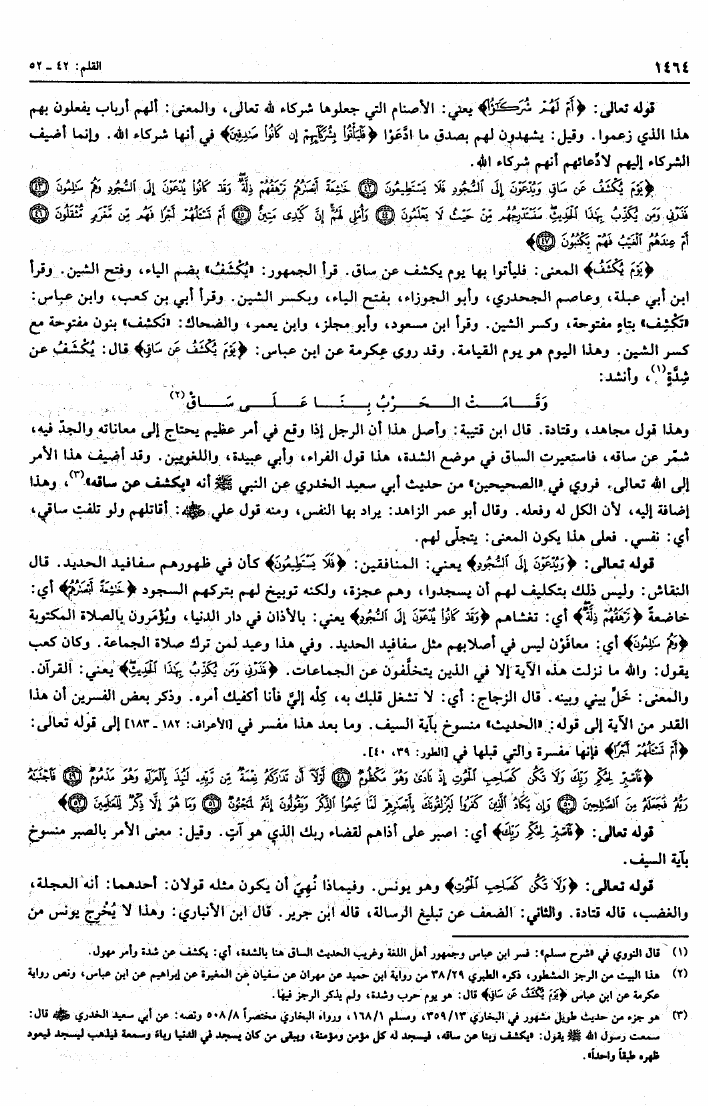 ١٤٦٤
القلم: ٤٢ ـ ٥٢
قوله تعالى: ﴿أَمْ لَهُمْ شُرَكَاءُ﴾ يعني: الأصنام التي جعلوها شركاء لله تعالى، والمعنى: ألهم أرباب يفعلون بهم
هذا الذي زعموا. وقيل: يشهدون لهم بصدق ما ادَّعَوْا ﴿فَلْيَأْتُوا بِشُرَكَائِهِمْ إِن كَانُوا صَادِقِينَ﴾ في أنها شركاء الله. وإنما أضيف
الشركاء إليهم لادِّعائهم أنهم شركاء الله.
﴿يَوْمَ يُكْشَفُ عَن سَاقٍ وَيُدْعَوْنَ إِلَى السُّجُودِ فَلَا يَسْتَطِيعُونَ ﴿٤٢﴾ خَاشِعَةً أَبْصَارُهُمْ تَرْهَقُهُمْ ذِلَّةٌ وَقَدْ كَانُوا يُدْعَوْنَ إِلَى السُّجُودِ وَهُمْ سَالِمُونَ ﴿٤٣﴾
فَذَرْنِي وَمَن يُكَذِّبُ بِهَذَا الْحَدِيثِ سَنَسْتَدْرِجُهُم مِّنْ حَيْثُ لَا يَعْلَمُونَ ﴿٤٤﴾ وَأُمْلِي لَهُمْ إِنَّ كَيْدِي مَتِينٌ ﴿٤٥﴾ أَمْ تَسْأَلُهُمْ أَجْرًا فَهُم مِّن مَّغْرَمٍ مُّثْقَلُونَ ﴿٤٦﴾
أَمْ عِندَهُمُ الْغَيْبُ فَهُمْ يَكْتُبُونَ ﴿٤٧﴾﴾
﴿يَوْمَ يُكْشَفُ﴾ المعنى: فليأتوا بها يوم يكشف عن ساق. قرأ الجمهور: «يُكْشَفُ» بضم الياء، وفتح الشين. وقرأ
ابن أبي عبلة، وعاصم الجحدري، وأبو الجوزاء، بفتح الياء، وبكسر الشين. وقرأ أبي بن كعب، وابن عباس:
«تَكْشِف» بتاءٍ مفتوحة، وكسر الشين. وقرأ ابن مسعود، وأبو مجلز، وابن يعمر، والضحاك: «نَكشف» بنون مفتوحة مع
كسر الشين. وهذا اليوم هو يوم القيامة. وقد روى عكرمة عن ابن عباس: ﴿يَوْمَ يُكْشَفُ عَن سَاقٍ﴾ قال: يُكْشَفُ عن
شِدَّةٍ(١)، وأنشد:
وَقَامَتْ الحَرْبُ بِنَا عَلَى سَاقْ(٢)
وهذا قول مجاهد، وقتادة. قال ابن قتيبة: وأصل هذا أن الرجل إذا وقع في أمر عظيم يحتاج إلى معاناته والجدّ فيه،
شمَّر عن ساقه، فاستعيرت الساق في موضع الشدة، هذا قول الفراء، وأبي عبيدة، واللغويين. وقد أضيف هذا الأمر
إلى الله تعالى. فروي في «الصحيحين» من حديث أبي سعيد الخدري عن النبي ﷺ أنه «يكشف عن ساقه»(٣)، وهذا
إضافة إليه، لأن الكل له وفعله. وقال أبو عمر الزاهد: يراد بها النفس، ومنه قول علي رضي الله عنه: أقاتلهم ولو تلفت ساقي،
أي: نفسي. فعلى هذا يكون المعنى: يتجلّى لهم.
قوله تعالى: ﴿وَيُدْعَوْنَ إِلَى السُّجُودِ﴾ يعني: المنافقين: ﴿فَلَا يَسْتَطِيعُونَ﴾ كأن في ظهورهم سفافيد الحديد. قال
النقاش: وليس ذلك بتكليف لهم أن يسجدوا، وهم عجزة، ولكنه توبيخ لهم بتركهم السجود ﴿خَاشِعَةً أَبْصَارُهُمْ﴾ أي:
خاضعةً ﴿تَرْهَقُهُمْ ذِلَّةٌ﴾ أي: تغشاهم ﴿وَقَدْ كَانُوا يُدْعَوْنَ إِلَى السُّجُودِ﴾ يعني: بالأذان في دار الدنيا، ويُؤمَرون بالصلاة المكتوبة
﴿وَهُمْ سَالِمُونَ﴾ أي: معافَوْن ليس في أصلابهم مثل سفافيد الحديد. وفي هذا وعيد لمن ترك صلاة الجماعة. وكان كعب
يقول: والله ما نزلت هذه الآية إلا في الذين يتخلَّفون عن الجماعات. ﴿فَذَرْنِي وَمَن يُكَذِّبُ بِهَذَا الْحَدِيثِ﴾ يعني: القرآن.
والمعنى: خَلِّ بيني وبينه. قال الزجاج: أي: لا تشغل قلبك به، كِلْه إليَّ فأنا أكفيك أمره. وذكر بعض الفسرين أن هذا
القدر من الآية إلى قوله: «الحديث» منسوخ بآية السيف. وما بعد هذا مفسر في [الأعراف: ١٨٢ ـ ١٨٣] إلى قوله تعالى:
﴿أَمْ تَسْأَلُهُمْ أَجْرًا﴾ فإنها مفسرة والتي قبلها في [الطور: ٣٩، ٤٠].
﴿فَاصْبِرْ لِحُكْمِ رَبِّكَ وَلَا تَكُن كَصَاحِبِ الْحُوتِ إِذْ نَادَى وَهُوَ مَكْظُومٌ ﴿٤٨﴾ لَّوْلَا أَن تَدَارَكَهُ نِعْمَةٌ مِّن رَّبِّهِ لَنُبِذَ بِالْعَرَاءِ وَهُوَ مَذْمُومٌ ﴿٤٩﴾ فَاجْتَبَاهُ
رَبُّهُ فَجَعَلَهُ مِنَ الصَّالِحِينَ ﴿٥٠﴾ وَإِن يَكَادُ الَّذِينَ كَفَرُوا لَيُزْلِقُونَكَ بِأَبْصَارِهِمْ لَمَّا سَمِعُوا الذِّكْرَ وَيَقُولُونَ إِنَّهُ لَمَجْنُونٌ ﴿٥١﴾ وَمَا هُوَ إِلَّا ذِكْرٌ لِّلْعَالَمِينَ ﴿٥٢﴾﴾
قوله تعالى: ﴿فَاصْبِرْ لِحُكْمِ رَبِّكَ﴾ أي: اصبر على أذاهم لقضاء ربك الذي هو آتٍ. وقيل: معنى الأمر بالصبر منسوخ
بآية السيف.
قوله تعالى: ﴿وَلَا تَكُن كَصَاحِبِ الْحُوتِ﴾ وهو يونس. وفيماذا نُهِيَ أن يكون مثله قولان: أحدهما: أنه العجلة،
والغضب، قاله قتادة. والثاني: الضعف عن تبليغ الرسالة، قاله ابن جرير. قال ابن الأنباري: وهذا لا يُخْرِج يونس من
(١) قال النووي في «شرح مسلم»: فسر ابن عباس وجمهور أهل اللغة وغريب الحديث الساق هنا بالشدة، أي: يكشف عن شدة وأمر مهول.
(٢) هذا البيت من الرجز المشطور، ذكره الطبري ٣٨/٢٩ من رواية ابن حميد عن مهران عن سفيان عن المغيرة عن إبراهيم عن ابن عباس، ونص رواية
عكرمة عن ابن عباس ﴿يَوْمَ يُكْشَفُ عَن سَاقٍ﴾ قال: هو يوم حرب وشدة، ولم يذكر الرجز فيها.
(٣) هو جزء من حديث طويل مشهور في البخاري ٣٥٩/١٣، ومسلم ١٦٨/١، ورواه البخاري مختصراً ٥٠٨/٨ ونصه: عن أبي سعيد الخدري رضي الله عنه قال:
سمعت رسول الله ﷺ يقول: «يكشف ربنا عن ساقه، فيسجد له كل مؤمن ومؤمنة، ويبقى من كان يسجد في الدنيا رياءً وسمعة فيذهب ليسجد فيعود
ظهره طبقاً واحداً».